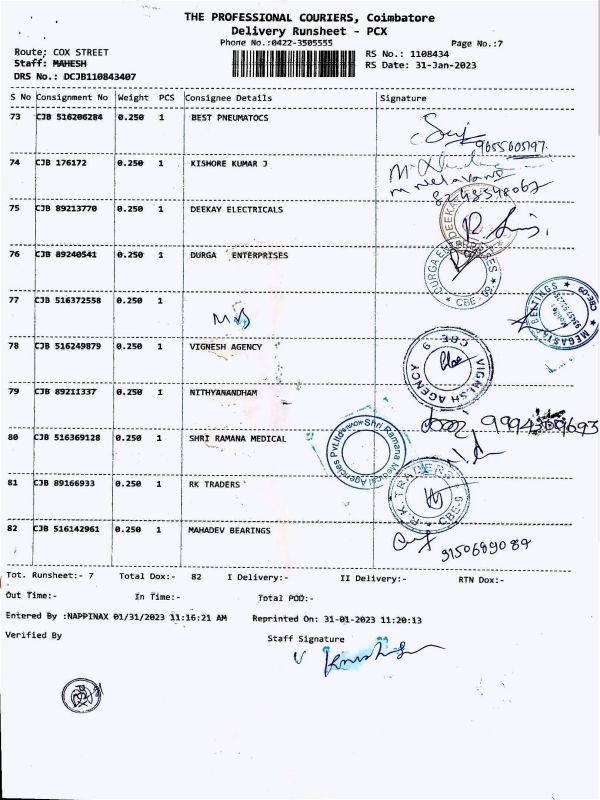 THE PROFESSIONAL COURIERS, Coimbatore
Delivery Runsheet - PCX
Phone No.:0422-3505555
Page No.:7
Route: COX STREET
RS No.: 1108434
Staff: MAHESH
RS Date: 31-Jan-2023
DRS No.: DCJB110843407
S No Consignment No Weight PCS Consignee Details Signature
73 CJB 516206284 0.250 1 BEST PNEUMATOCS
9655605797.
74 CJB 176172 0.250 1 KISHORE KUMAR J
75 CJB 89213770 0.250 1 DEEKAY ELECTRICALS
76 CJB 89240541 0.250 1 DURGA ENTERPRISES
CBE-69
77 CJB 516372558 0.250 1
M.B
78 CJB 516249879 0.250 1 VIGNESH AGENCY
VIGNESH AGENCY
79 CJB 89211337 0.250 1 NITHYANANDHAM
80 CJB 516369128 0.250 1 SHRI RAMANA MEDICAL
Shri Ramana Medical Agencies Pvt.Ltd
81 CJB 89166933 0.250 1 RK TRADERS
R.K. TRADERS
82 CJB 516142961 0.250 1 MAHADEV BEARINGS
9150689089
Tot. Runsheet:- 7 Total Dox:- 82 I Delivery:- II Delivery:- RTN Dox:-
Out Time:- In Time:- Total POD:-
Entered By :NAPPINAX 01/31/2023 11:16:21 AM Reprinted On: 31-01-2023 11:20:13
Verified By
Staff Signature